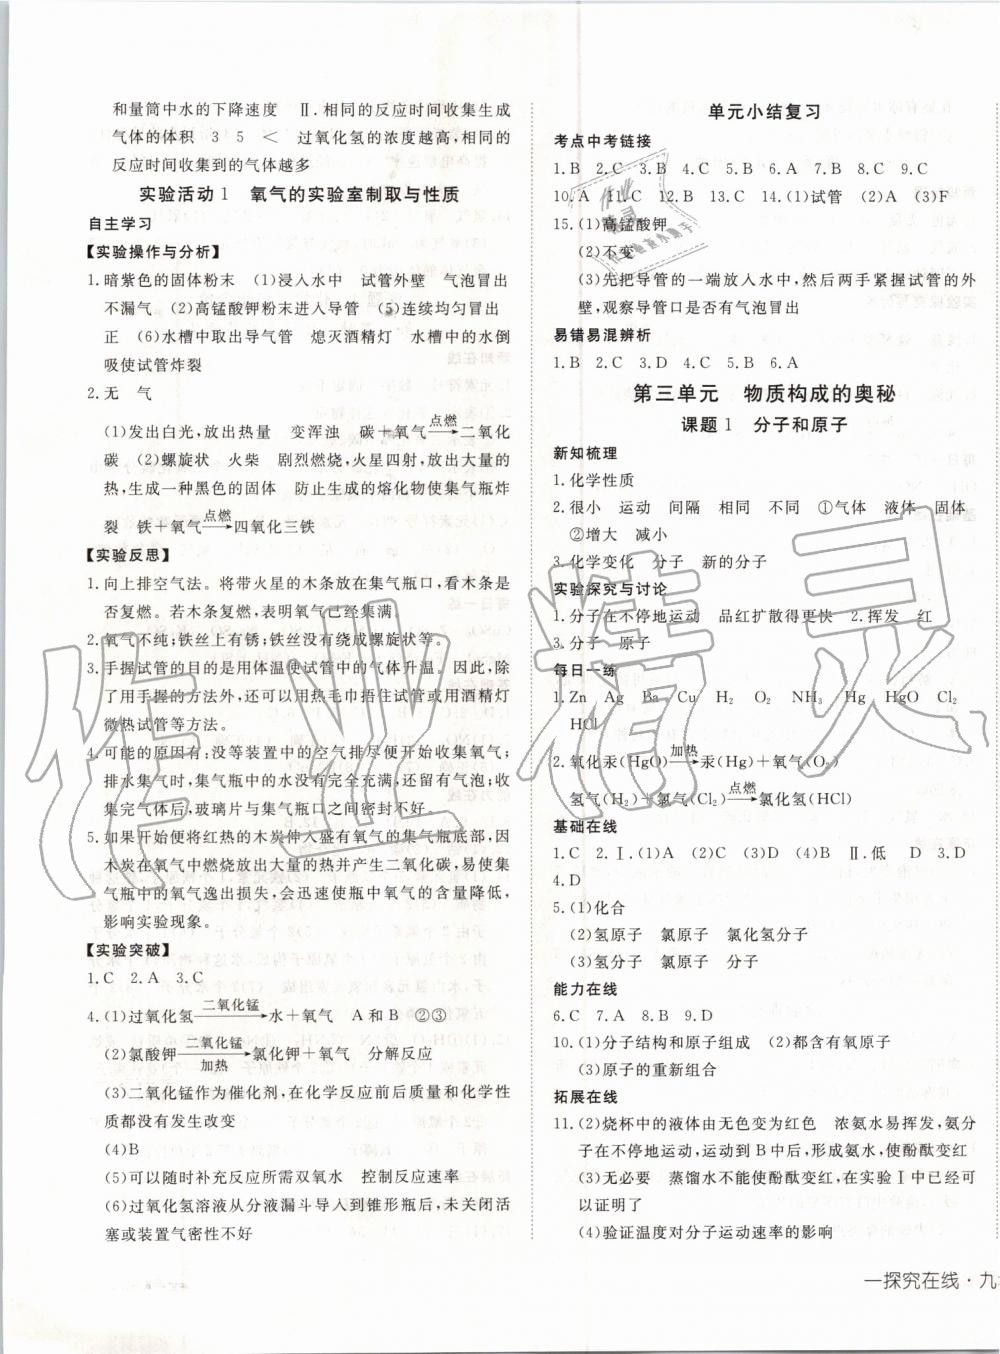 和量筒中水的下降速度　Ⅱ.相同的反应时间收集生成
气体的体积　3　5　＜　过氧化氢的浓度越高,相同的
反应时间收集到的气体越多
实验活动1　氧气的实验室制取与性质
自主学习
【实验操作与分析】
1.暗紫色的固体粉末　(1)浸入水中　试管外壁　气泡冒出
不漏气　(2)高锰酸钾粉末进入导管　(5)连续均匀冒出
正　(6)水槽中取出导气管　熄灭酒精灯　水槽中的水倒
吸使试管炸裂
2.无　气
(1)发出白光,放出热量　变浑浊　碳＋氧气 点燃→ 二氧化
碳　(2)螺旋状　火柴　剧烈燃烧,火星四射,放出大量的
热,生成一种黑色的固体　防止生成的熔化物使集气瓶炸
裂　铁＋氧气 点燃→ 四氧化三铁
【实验反思】
1.向上排空气法。将带火星的木条放在集气瓶口,看木条是
否复燃。若木条复燃,表明氧气已经集满。
2.氧气不纯;铁丝上有锈;铁丝没有绕成螺旋状等。
3.手握试管的目的是用体温使试管中的气体升温。因此,除
了用手握的方法外,还可以用热毛巾捂住试管或用酒精灯
微热试管等方法。
4.可能的原因有:没等装置中的空气排尽便开始收集氧气;
排水集气时,集气瓶中的水没有完全充满,还留有气泡;收
集完气体后,玻璃片与集气瓶口之间密封不好。
5.如果开始便将红热的木炭伸入盛有氧气的集气瓶底部,因
木炭在氧气中燃烧放出大量的热并产生二氧化碳,易使集
气瓶中的氧气逸出损失,会迅速使瓶中氧气的含量降低,
影响实验现象。
【实验突破】
1.C　2.A　3.C
4.(1)过氧化氢 二氧化锰→ 水＋氧气　A和B　②③
(2)氯酸钾 二氧化锰/加热→ 氯化钾＋氧气　分解反应
(3)二氧化锰作为催化剂,在化学反应前后质量和化学性
质都没有发生改变
(4)B
(5)可以随时补充反应所需双氧水　控制反应速率
(6)过氧化氢溶液从分液漏斗导入到锥形瓶后,未关闭活
塞或装置气密性不好
单元小结复习
考点中考链接
1.B　2.C　3.B　4.C　5.C　6.A　7.B　8.C　9.C
10.A　11.C　12.B　13.C　14.(1)试管　(2)A　(3)F
15.(1)高锰酸钾
(2)不变
(3)先把导管的一端放入水中,然后两手紧握试管的外
壁,观察导管口是否有气泡冒出
易错易混辨析
1.B　2.C　3.D　4.C　5.B　6.A
第三单元　物质构成的奥秘
课题1　分子和原子
新知梳理
1.化学性质
2.很小　运动　间隔　相同　不同　①气体　液体　固体
②增大　减小
3.化学变化　分子　新的分子
实验探究与讨论
1.分子在不停地运动　品红扩散得更快　2.挥发　红
3.分子　原子
每日一练
1.Zn　Ag　Ba　Cu　H₂　O₂　NH₃　Hg　HgO　Cl₂
HCl
2.氧化汞(HgO) 加热→ 汞(Hg)＋氧气(O₂)
氢气(H₂)＋氯气(Cl₂) 点燃→ 氯化氢(HCl)
基础在线
1.C　2.Ⅰ.(1)A　(2)C　(3)D　(4)B　Ⅱ.低　D　3.D
4.D
5.(1)化合
(2)氢原子　氯原子　氯化氢分子
(3)氢分子　氯原子　分子
能力在线
6.C　7.A　8.B　9.D
10.(1)分子结构和原子组成　(2)都含有氧原子
(3)原子的重新组合
拓展在线
11.(2)烧杯中的液体由无色变为红色　浓氨水易挥发,氨分
子在不停地运动,运动到B中后,形成氨水,使酚酞变红
(3)无必要　蒸馏水不能使酚酞变红,在实验Ⅰ中已经可
以证明了
(4)验证温度对分子运动速率的影响
一探究在线·九
作业精灵